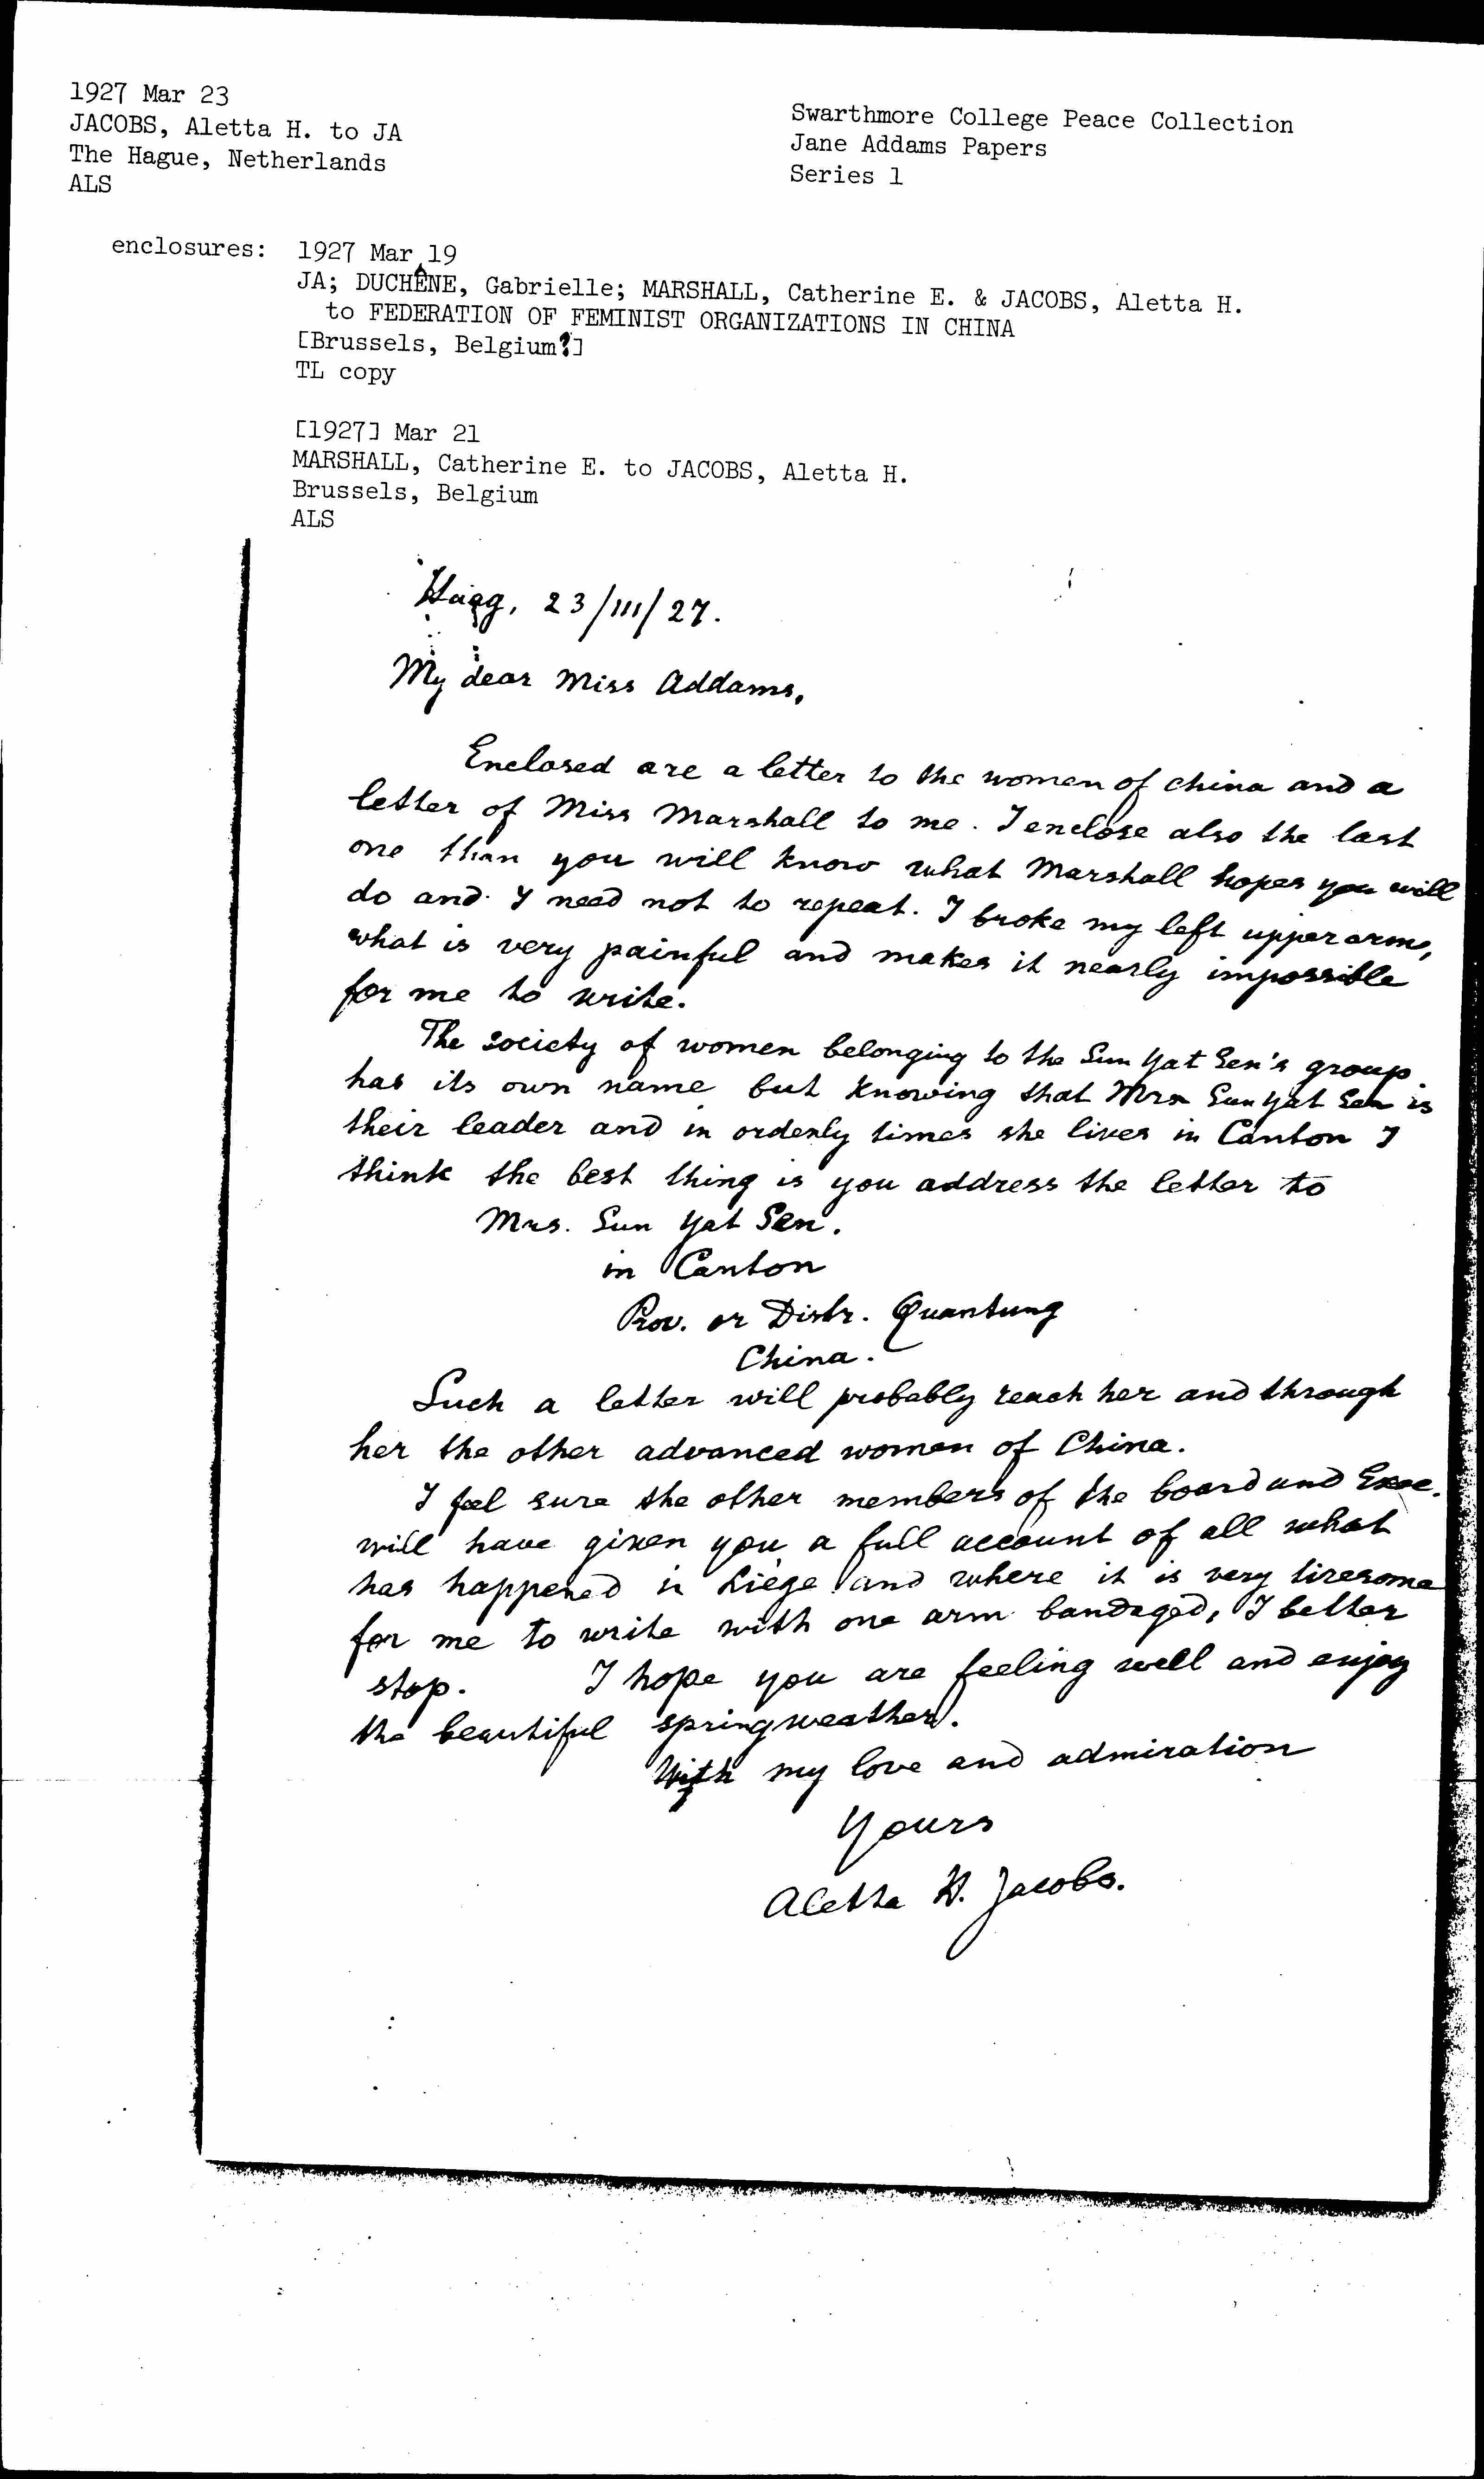 1927 Mar 23
JACOBS, Aletta H. to JA
The Hague, Netherlands
ALS
Swarthmore College Peace Collection
Jane Addams Papers
Series 1
enclosures: 1927 Mar 19
JA; DUCHÊNE, Gabrielle; MARSHALL, Catherine E. & JACOBS, Aletta H.
to FEDERATION OF FEMINIST ORGANIZATIONS IN CHINA
[Brussels, Belgium?]
TL copy
[1927] Mar 21
MARSHALL, Catherine E. to JACOBS, Aletta H.
Brussels, Belgium
ALS
Haag, 23/III/27.
My dear Miss Addams,
Enclosed are a letter to the women of china and a
letter of Miss Marshall to me. I enclose also the last
one than you will know what Marshall hopes you will
do and I need not to repeat. I broke my left upper arm,
what is very painful and makes it nearly impossible
for me to write.
The society of women belonging to the Sun Yat Sen's group
has its own name but knowing that Mrs Sun Yat Sen is
their leader and in ordenly times she lives in Canton I
think the best thing is you address the letter to
Mrs. Sun Yat Sen.
in Canton
Prov. or Distr. Quantung
China.
Such a letter will probably reach her and through
her the other advanced women of China.
I feel sure the other members of the board and Exec.
will have given you a full account of all what
has happened in Liège and where it is very tiresome
for me to write with one arm bandaged, I better
stop. I hope you are feeling well and enjoy
the beautiful springweather.
With my love and admiration
Yours
Aletta H. Jacobs.